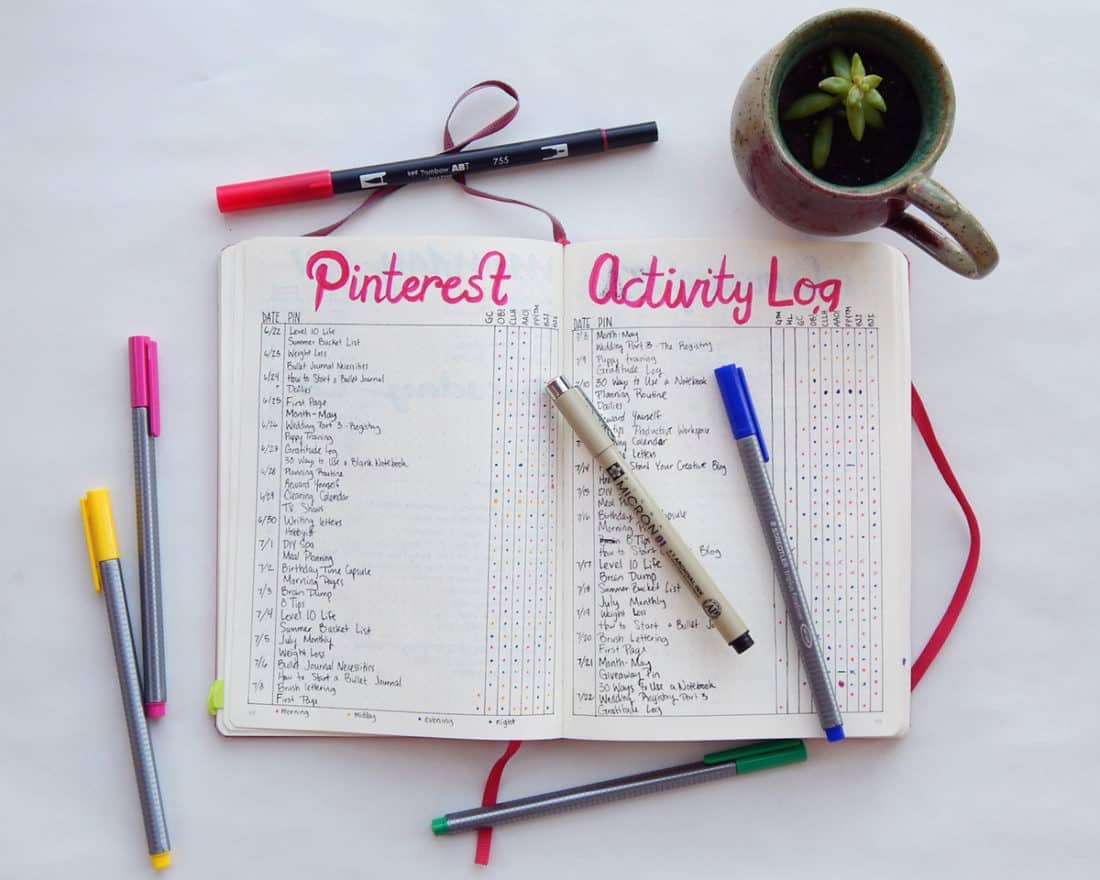 Tombow ABT
755
Pinterest
DATE PIN GC OBJ CLLH AAOJ PPITM BJJ
6/22 Level 10 Life
Summer Bucket List
6/23 Weight Loss
Bullet Journal Necessities
6/24 How to Start a Bullet Journal
Dailies
6/25 First Page
Month-May
6/26 Wedding Part 3 - Registry
Puppy Training
6/27 Gratitude Log
30 Ways to Use a Blank Notebook
6/28 Planning Routine
Reward Yourself
6/29 Cleaning Calendar
T.V. Shows
6/30 Writing letters
7/1 DIY Spa
Meal Planning
7/2 Birthday Time Capsule
Morning Pages
7/3 Brain Dump
8 Tips
7/4 Level 10 Life
Summer Bucket List
7/5 July Monthly
Weight Loss
7/6 Bullet Journal Necessities
How to Start a Bullet Journal
7/8 Brush lettering
First Page
morning midday evening night
Activity Log
DATE PIN GTM HL GC OBJ CLLH AAOJ PPITM BJJ BJI
7/8 Month-May
Wedding Part 3 - The Registry
7/9 Puppy training
Gratitude Log
7/10 30 Ways to Use a Notebook
Planning Routine
Dailies
Yourself
Tips Productive Workspace
Calendar
Letters
7/14 Start Your Creative Blog
7/15 DIY
Meal
7/16 Birthday
Morning
8 Tips
How to Start Blog
7/17 Level 10 Life
Brain Dump
7/18 Summer Bucket List
July Monthly
7/19 Weight Loss
How to Start a Bullet
7/20 Brush Lettering
First Page
7/21 Month-May
Giveaway Pin
30 Ways to Use a Notebook
7/22 Wedding Registry Part 3
Gratitude Log
MICRON
STAEDTLER